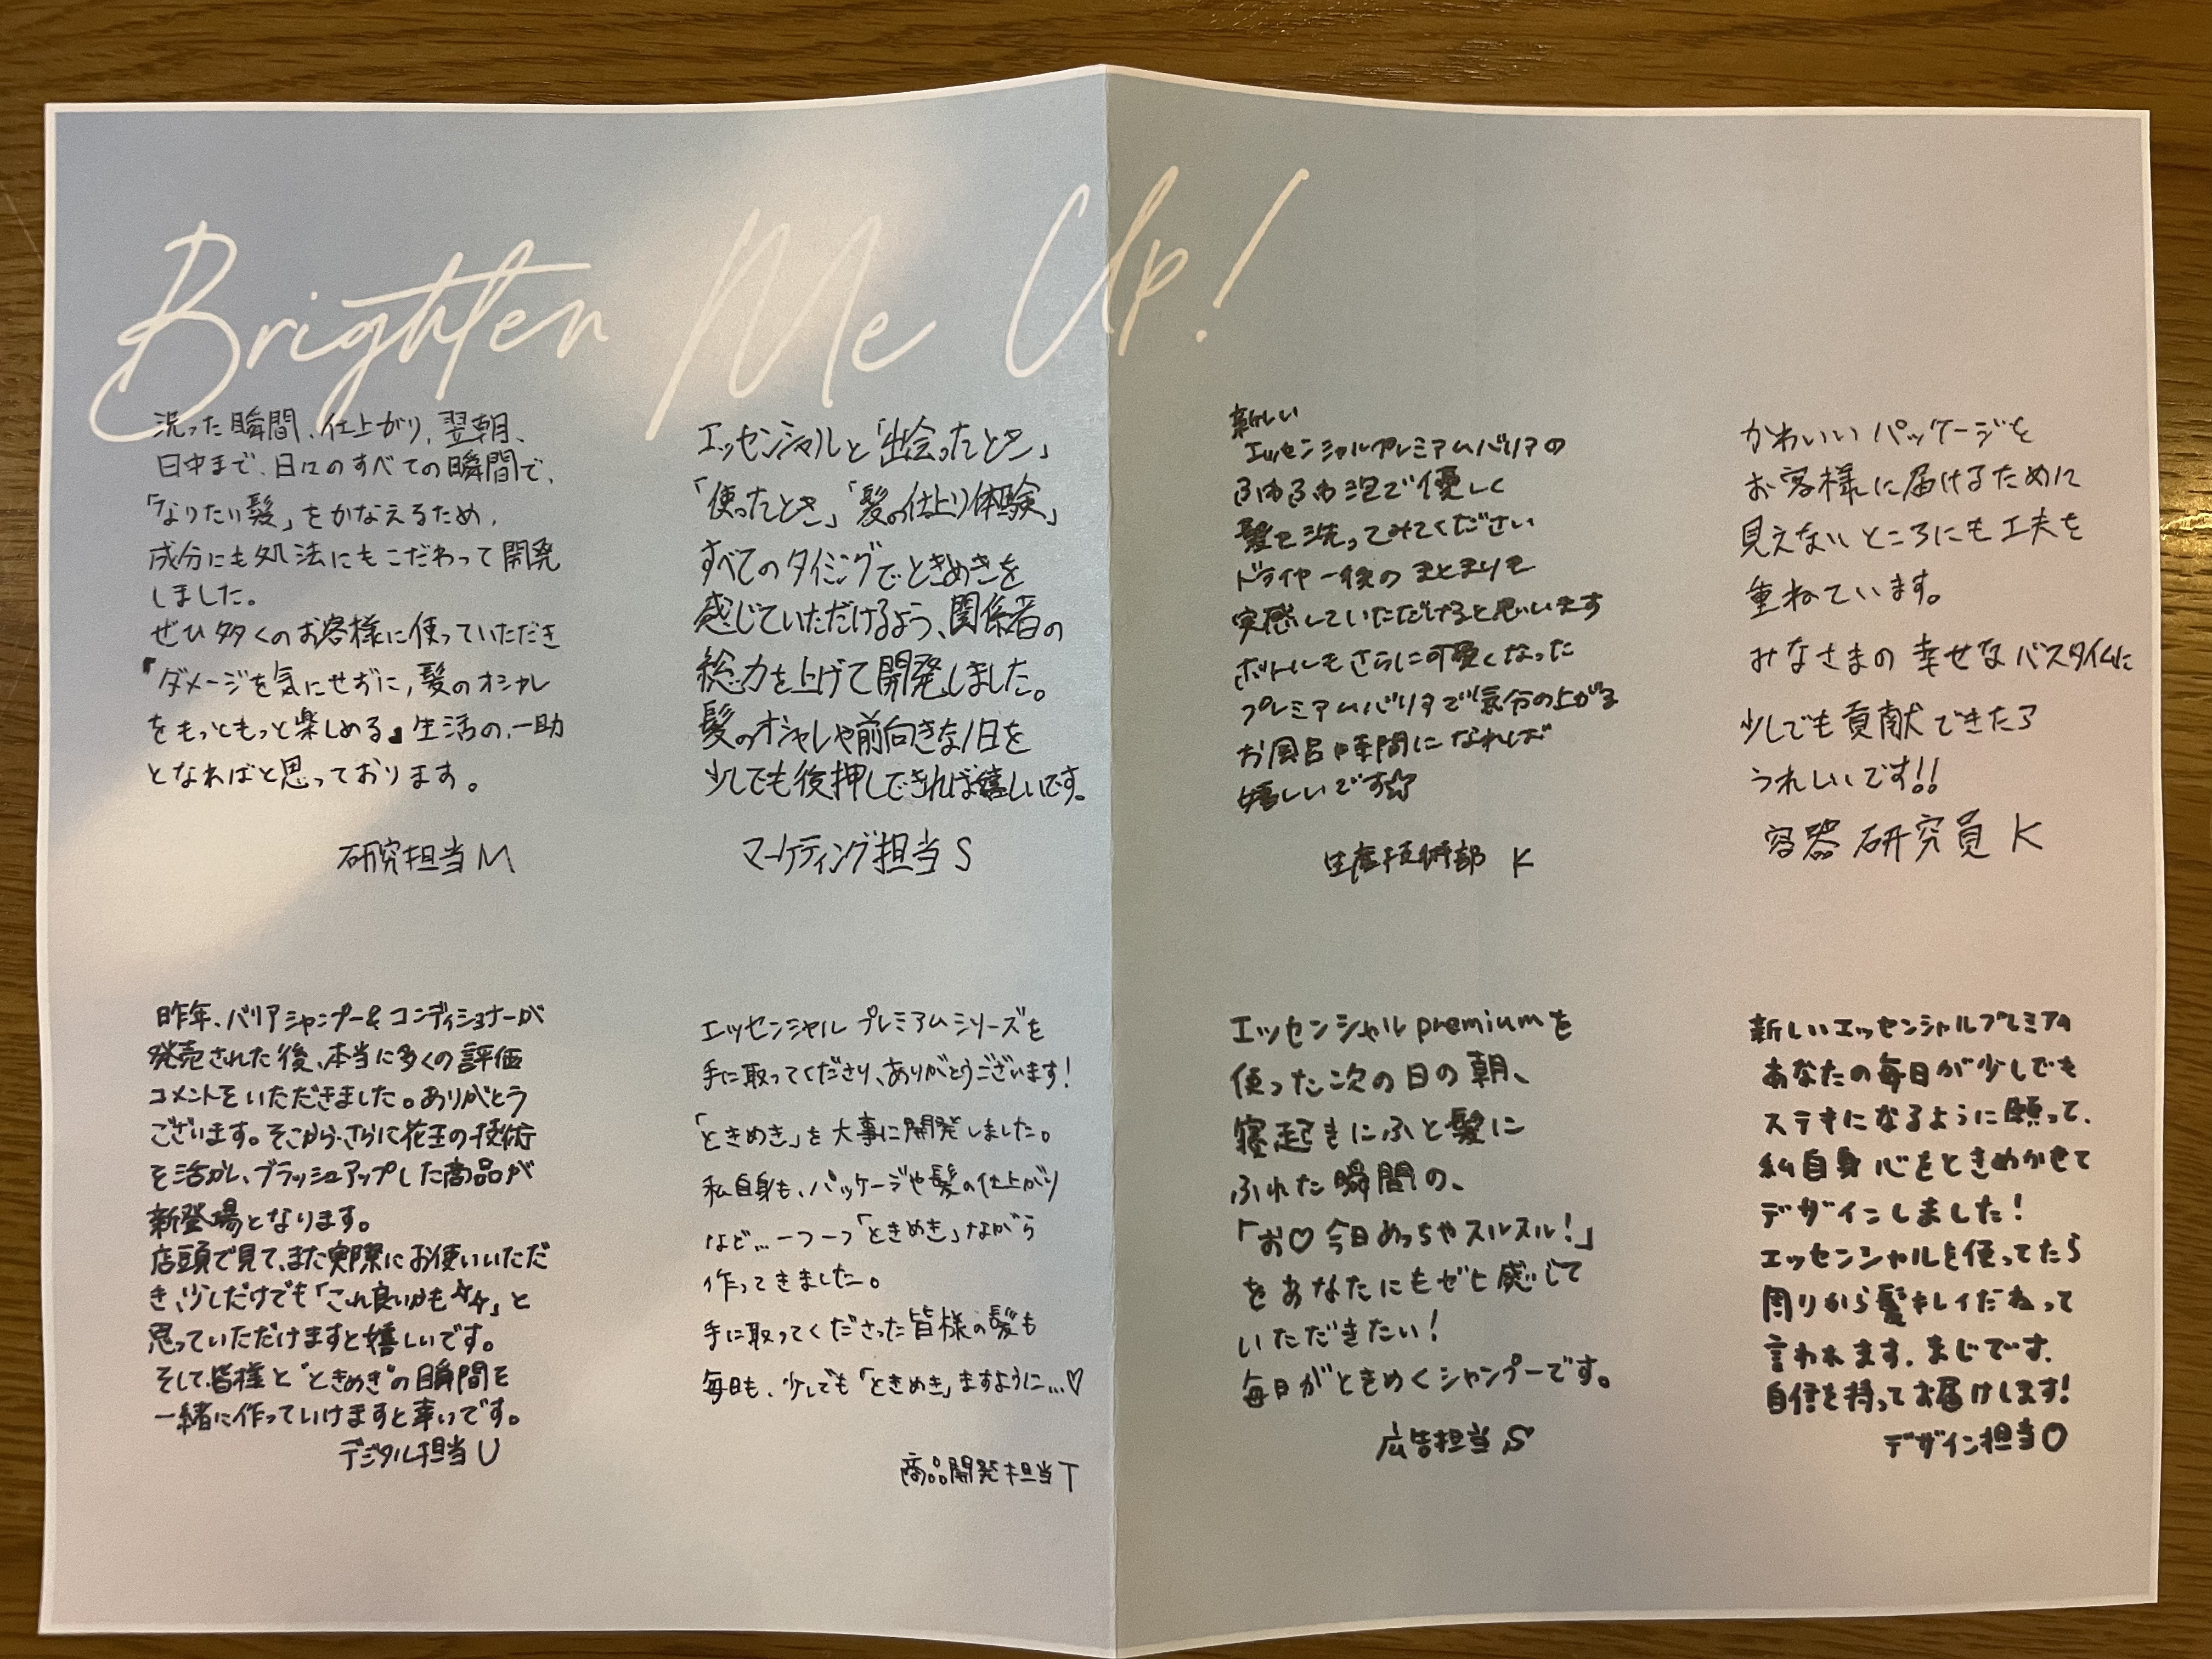 Brighten Me Up!
洗った瞬間、仕上がり、翌朝、
日中まで、日々のすべての瞬間で、
「なりたい髪」をかなえるため、
成分にも処法にもこだわって開発
しました。
ぜひ多くのお客様に使っていただき
『ダメージを気にせずに、髪のオシャレ
をもっともっと楽しめる』生活の、一助
となればと思っております。
研究担当M
エッセンシャルと「出会ったとき」
「使ったとき」「髪の仕上り体験」
すべてのタイミングでときめきを
感じていただけるよう、関係者の
総力を上げて開発しました。
髪のオシャレや前向きな1日を
少しでも後押しできれば嬉しいです。
マーケティング担当 S
新しい
エッセンシャルプレミアムバリアの
ふわふわ泡で優しく
髪を洗ってみてください
ドライヤー後のまとまりを
実感していただけると思います
ボトルもさらに可愛くなった
プレミアムバリアで気分の上がる
お風呂時間になれば
嬉しいです☆
生産技術部 K
かわいいパッケージを
お客様に届けるために
見えないところにも工夫を
重ねています。
みなさまの幸せなバスタイムに
少しでも貢献できたら
うれしいです!!
容器研究員 K
昨年、バリアシャンプー&コンディショナーが
発売された後、本当に多くの評価
コメントをいただきました。ありがとう
ございます。そこから、さらに花王の技術
を活かし、ブラッシュアップした商品が
新登場となります。
店頭で見て、また実際にお使いいただ
き、少しだけでも「これ良いかも☆☆」と
思っていただけますと嬉しいです。
そして、皆様と"ときめき"の瞬間を
一緒に作っていけますと幸いです。
デジタル担当 U
エッセンシャル プレミアムシリーズを
手に取ってくださり、ありがとうございます!
「ときめき」を大事に開発しました。
私自身も、パッケージや髪の仕上がり
など…一つ一つ「ときめき」ながら
作ってきました。
手に取ってくださった皆様の髪も
毎日も、少しでも「ときめき」ますように…♡
商品開発担当T
エッセンシャルpremiumを
使った次の日の朝、
寝起きにふと髪に
ふれた瞬間の、
「お♡今日めっちゃスルスル!」
をあなたにもゼヒ感じて
いただきたい!
毎日がときめくシャンプーです。
広告担当 S
新しいエッセンシャルプレミアム
あなたの毎日が少しでも
ステキになるように願って、
私自身心をときめかせて
デザインしました!
エッセンシャルを使ってたら
周りから髪キレイだねって
言われます。まじです。
自信を持ってお届けします!
デザイン担当O